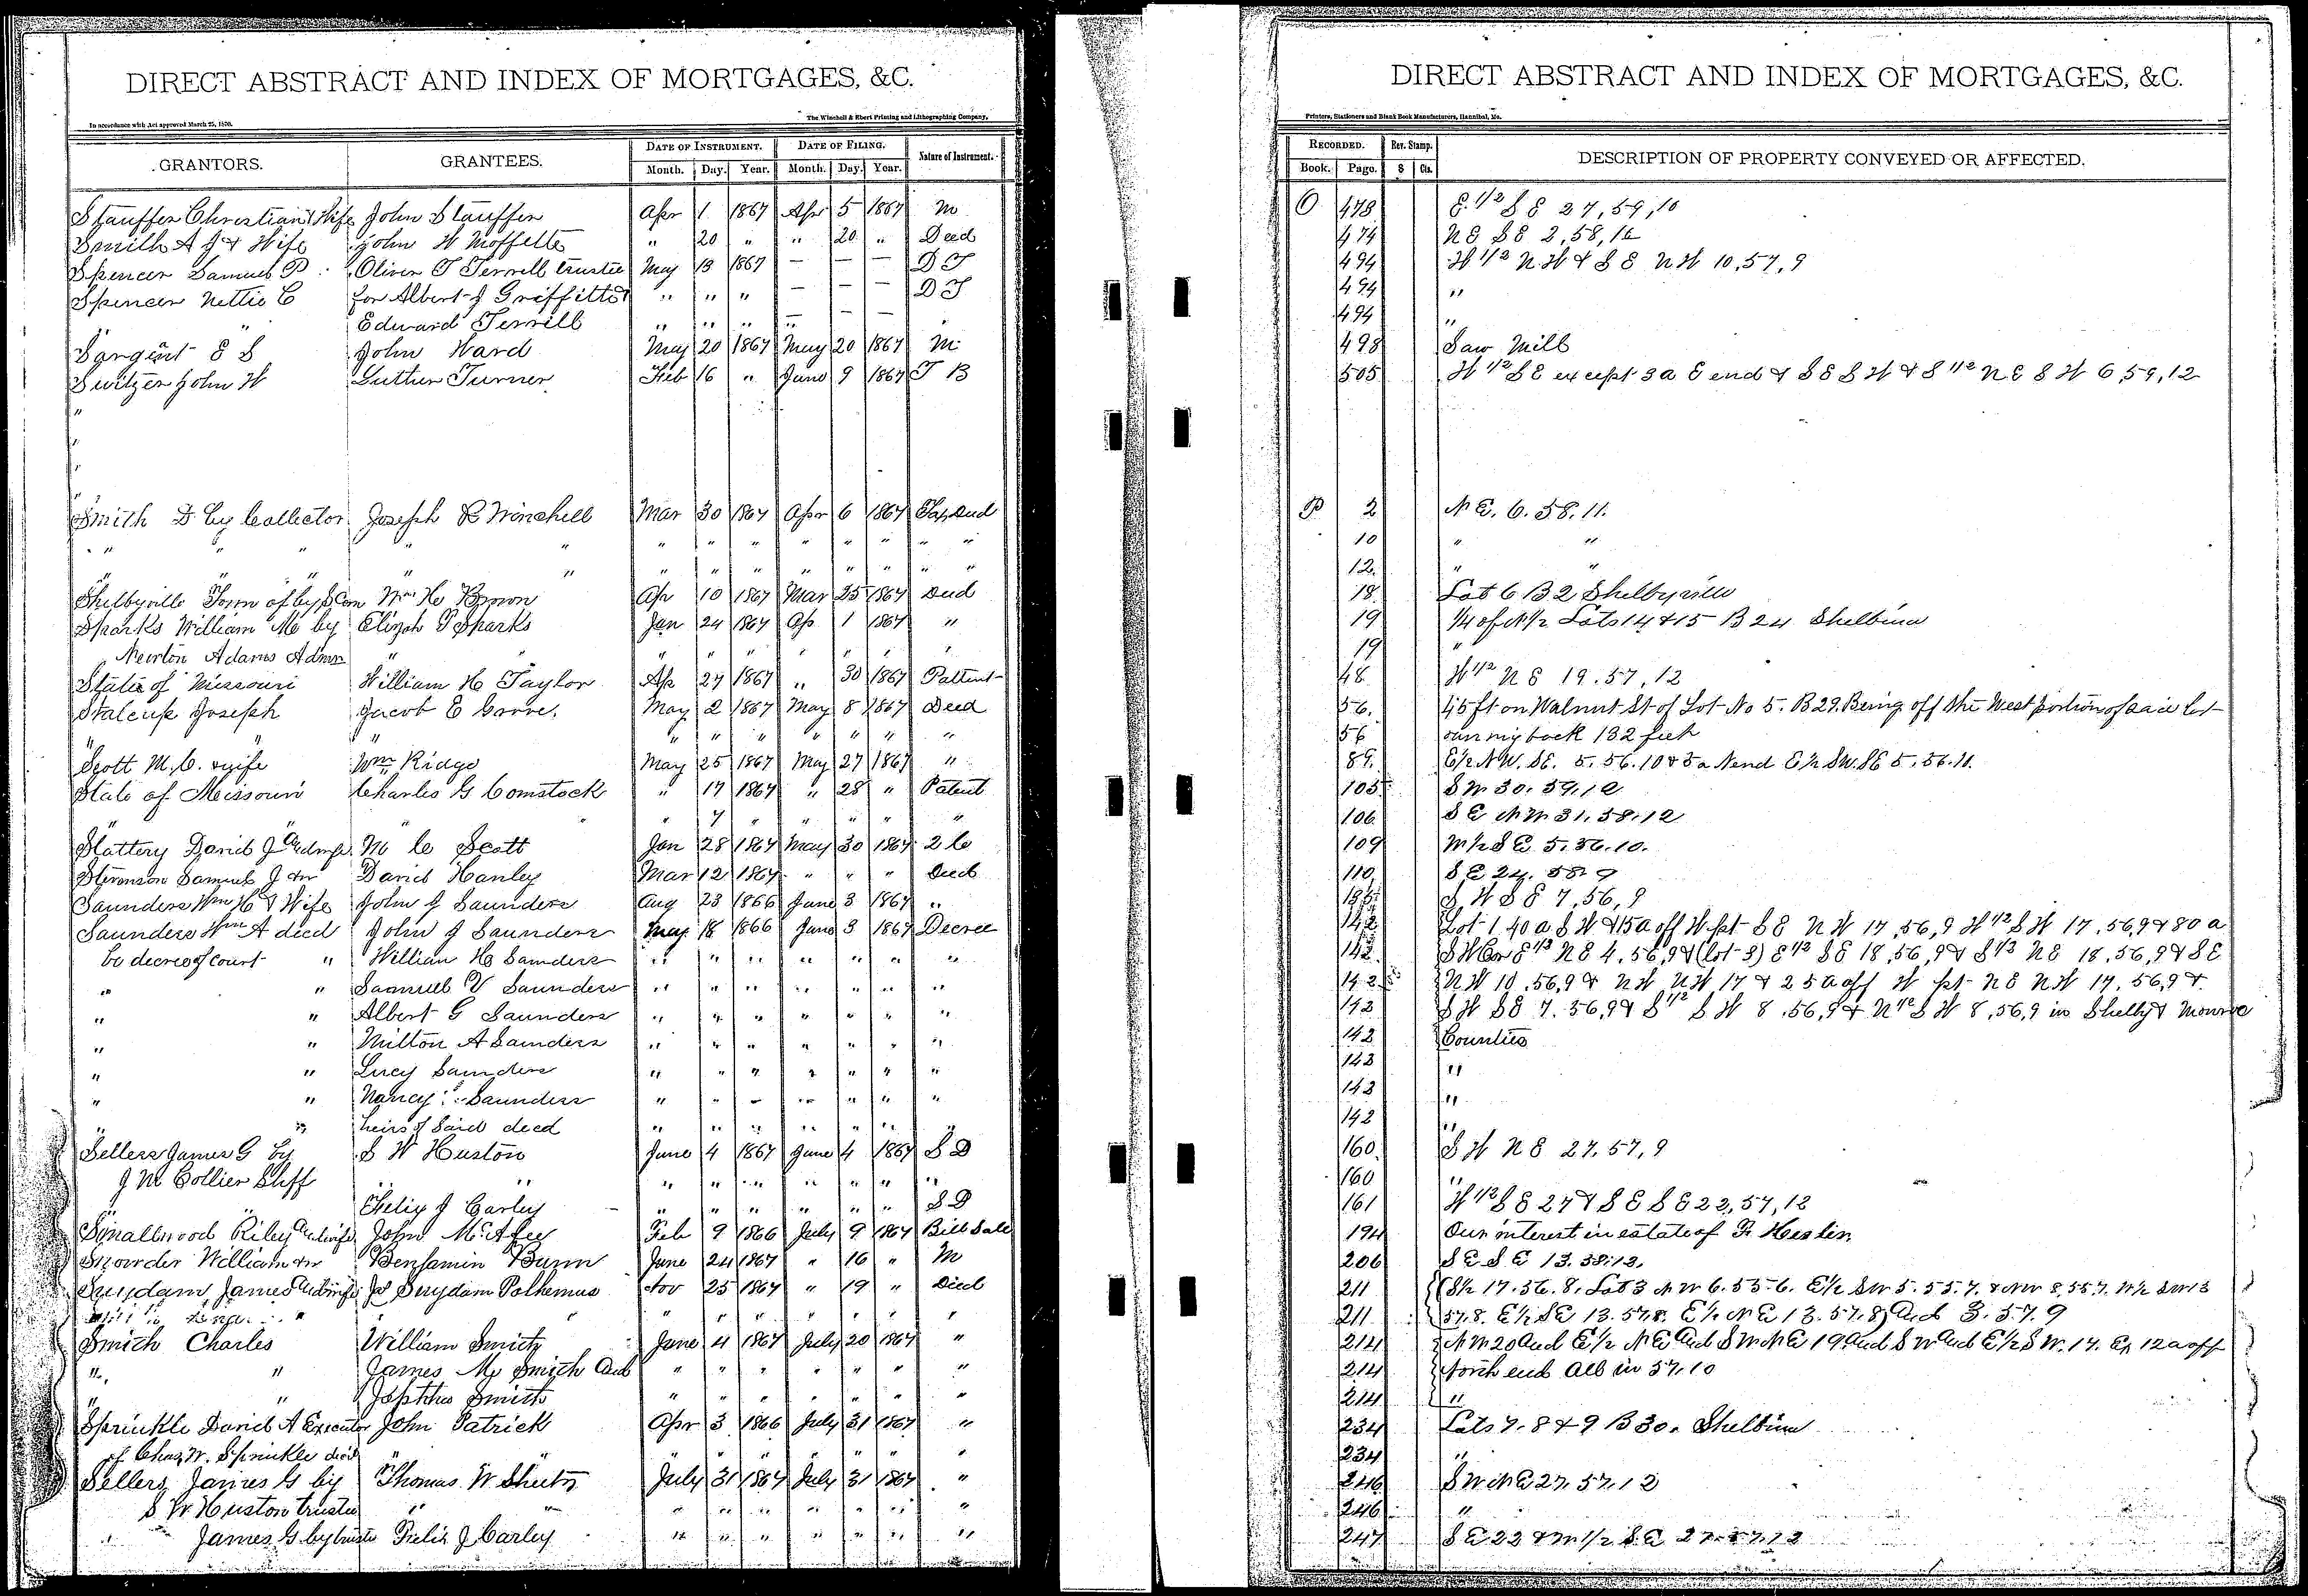 DIRECT ABSTRACT AND INDEX OF MORTGAGES, &C.
In accordance with Act approved March 25, 1870.
The Winchell & Ebert Printing and Lithographing Company,
GRANTORS. GRANTEES. DATE OF INSTRUMENT. DATE OF FILING. Nature of Instrument.
Month. Day. Year. Month. Day. Year.
Stauffer Christian & Wife John Stauffer Apr 1 1867 Apr 5 1867 M
Smith A J & Wife John W Moffette " 20 " " 20 " Deed
Spencer Samuel P Oliver T Terrell trustee May 13 1867 — — — D T
Spencer Nettie C for Albert J Griffitts " " " — — — D T
" Edward Terrill " " " " — —
Sargent E S John Ward May 20 1867 May 20 1867 M
Switzer John W Luther Turner Feb 16 " June 9 1867 T B
"
"
"
"
Smith D by Collector Joseph R Winchell Mar 30 1867 Apr 6 1867 Tax Deed
" " " " " " " " " " " "
" " " " " " " " " " " "
Shelbyville Town of by S Com Wm H Brown Apr 10 1867 Mar 25 1867 Deed
Sparks William M by Elijah P Sparks Jan 24 1867 Ap 1 1867 "
Newton Adams Admr " " " " " " " " "
State of Missouri William H Taylor Ap 27 1867 " 30 1867 Pattent
Stalcup Joseph Jacob E Grove. May 2 1867 May 8 1867 Deed
" " " " " " " " "
Scott M. C. & wife Wm Ridge May 25 1867 May 27 1867 "
State of Missouri Charles G Comstock " 17 1867 " 28 " Patent
" " " 7 " " " " "
Slattery David J And wife M C Scott Jan 28 1867 May 30 1867 2 C
Stevenson Samuel J &w David Hanley Mar 12 1867 " " " Deed
Saunders Wm H & Wife John J Saunders Aug 23 1866 June 3 1867 "
Saunders Wm A decd John J Saunders May 18 1866 June 3 1867 Decree
by decree of court " William H Saunders " " " " " " "
" " Samuel V Saunders " " " " " " "
" " Albert G Saunders " " " " " " "
" " Milton A Saunders " " " " " " "
" " Lucy Saunders " " " " " " "
" " Nancy Saunders " " " " " " "
" " heirs of said decd " " " " " " "
Sellers James G by S W Huston June 4 1867 June 4 1867 S D
J M Collier Shff " " " " " " " " "
" " Felix J Carley " " " " " " S D
Smallwood Riley And wife John McAfee Feb 9 1866 July 9 1867 Bill Sale
Snowder William &w Benjamin Bunn June 24 1867 " 16 " M
Suydam James And wife Js Suydam Polhemus Nov 25 1867 " 19 " Deed
" " " " " " " "
Smith Charles William Smith June 4 1867 July 20 1867 "
" " James M Smith And " " " " " " "
" " Jepthus Smith " " " " " " "
Sprinkle David A Executor John Patrick Apr 3 1866 July 31 1867 "
of Chas W. Sprinkle decd " " " " " " " " "
Sellers James G by Thomas W Sheetz July 31 1867 July 31 1867 "
S W Huston trustee " " " " " " " " "
" James G. by trustee Felix J Carley " " " " " " "
DIRECT ABSTRACT AND INDEX OF MORTGAGES, &C.
Printers, Stationers and Blank Book Manufacturers, Hannibal, Mo.
RECORDED. Rev. Stamp. DESCRIPTION OF PROPERTY CONVEYED OR AFFECTED.
Book. Page. $ Cts.
O 478 E 1/2 S E 27, 59, 10
474 N E S E 2, 58, 12
494 W 1/2 N W & S E N W 10, 57, 9
494 "
494 "
498 Saw Mill
505 W 1/2 S E except 3 a E end & S E S W & S 1/2 N E S W 6, 59, 12
P 2 N E. 6. 58. 11.
10 " "
12 " "
18 Lot 6 B 2 Shelbyville
19 1/4 of N 1/2 Lots 14 & 15 B 24 Shelbina
19 "
48 W 1/2 N E 19. 57, 12
56. 45 ft on Walnut St of Lot No 5. B 29. Being off the West portion of said lot
56 running back 132 feet
89. E 1/2 N W. S E. 5. 56. 10 & 5 a N end E 1/2 S W. S E 5. 56. 11.
105 S W 30. 59. 12
106 S E N W 31. 58. 12
109 W 1/2 S E 5. 56. 10.
110 S E 24. 58. 9
S W S E 7, 56, 9
142 Lot 1. 40 a S W & 15 a off W. pt S E N W 17, 56, 9 W 1/2 S W 17, 56, 9 & 80 a
142 S W Cor E 1/2 N E 4, 56, 9 & (lot 3) E 1/2 S E 18, 56, 9 & S 1/2 N E 18, 56, 9 & S E
142 N W 10, 56, 9 & N W N W 17 & 25 a off W pt N E N W 17. 56, 9 &
142 S W S E 7. 56, 9 & S 1/2 S W 8, 56, 9 & N 1/2 S W 8, 56, 9 in Shelby & Monroe
142 Counties
142 "
142 "
142 "
160 S W N E 27. 57, 9
160 "
161 W 1/2 S E 27 & S E S E 22, 57, 12
194 Our interest in estate of F. Heslin
206 S E S E 13. 58. 13.
211 S 1/2 17. 56. 8. Lot 3 N W 6. 55. 6. E 1/2 S W 5. 55. 7. & N W 8. 55. 7. W 1/2 S W 13
211 57. 8. E 1/2 S E 13. 57. 8. E 1/2 N E 13. 57. 8) And 3. 57. 9
214 N W 20 And E 1/2 N E And S W N E 19. And S W And E 1/2 S W. 17. Ex 12 a off
214 North end All in 57. 10
214 "
234 Lots 7. 8 & 9 B 30. Shelbina
234 "
246 S W N E 27. 57. 12
246 "
247 S E 22 & W 1/2 S E 27. 57. 12